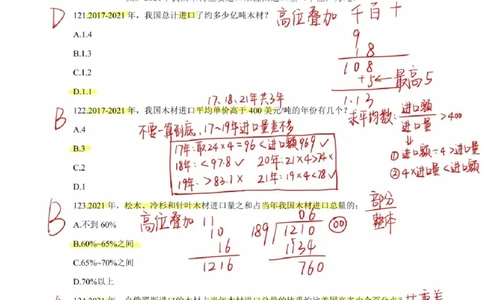 D 121.2017-2021 年，我国总计进口了约多少亿吨木材？ 高位叠加 千百十
A.1.4
B.1.3
C.1.2
D.1.1
9
18
108
+5 ← 最高5
1.13
17、18、21年共3年
B 122.2017-2021 年，我国木材进口平均单价高于 400 美元/吨的年份有几个？
A.4
B.3
C.2
D.1
不要一算到底，17~19年进口量差不多
17年：取24×4=96<进口额969 ✓
18年：<97.8 ✓ 20年：21×4>74×
19年：>83.1 × 21年：19×4<78 ✓
求平均数：进口额/进口量 >400
①进口额÷4>进口量
②4×进口量<进口额
B 123.2021 年，松木、冷杉和针叶木材进口量之和占当年我国木材进口总量的： 部分/整体
A.不到 60%
B.60%~65%之间
C.65%~70%之间
D.70%以上
高位叠加
11
10
16
1216
06
189 1210 00
1134
760